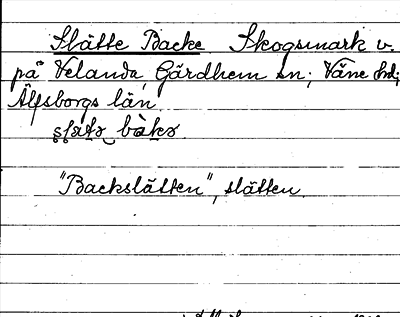 Slätte Backe Skogsmark v.
på Velanda, Gärdhem sn; Väne hd;
Älfsborgs län.
bàkə.
"Backslätten", slätten